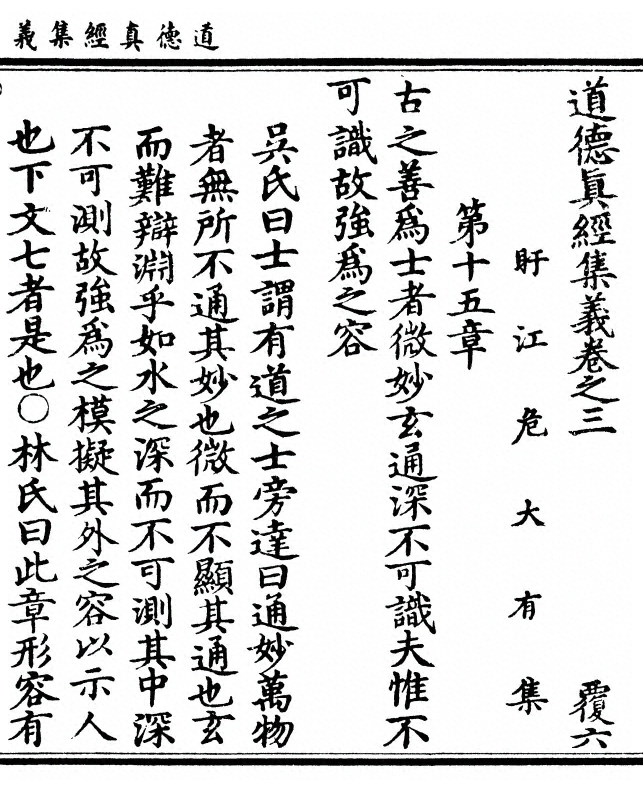 道德真經集義
道德眞經集義卷之三 覆六
盱江危大有集
第十五章
古之善爲士者微妙玄通深不可識夫惟不
可識故強爲之容
吳氏曰士謂有道之士旁達曰通妙萬物
者無所不通其妙也微而不顯其通也玄
而難辯淵乎如水之深而不可測其中深
不可測故強爲之模擬其外之容以示人
也下文七者是也○林氏曰此章形容有